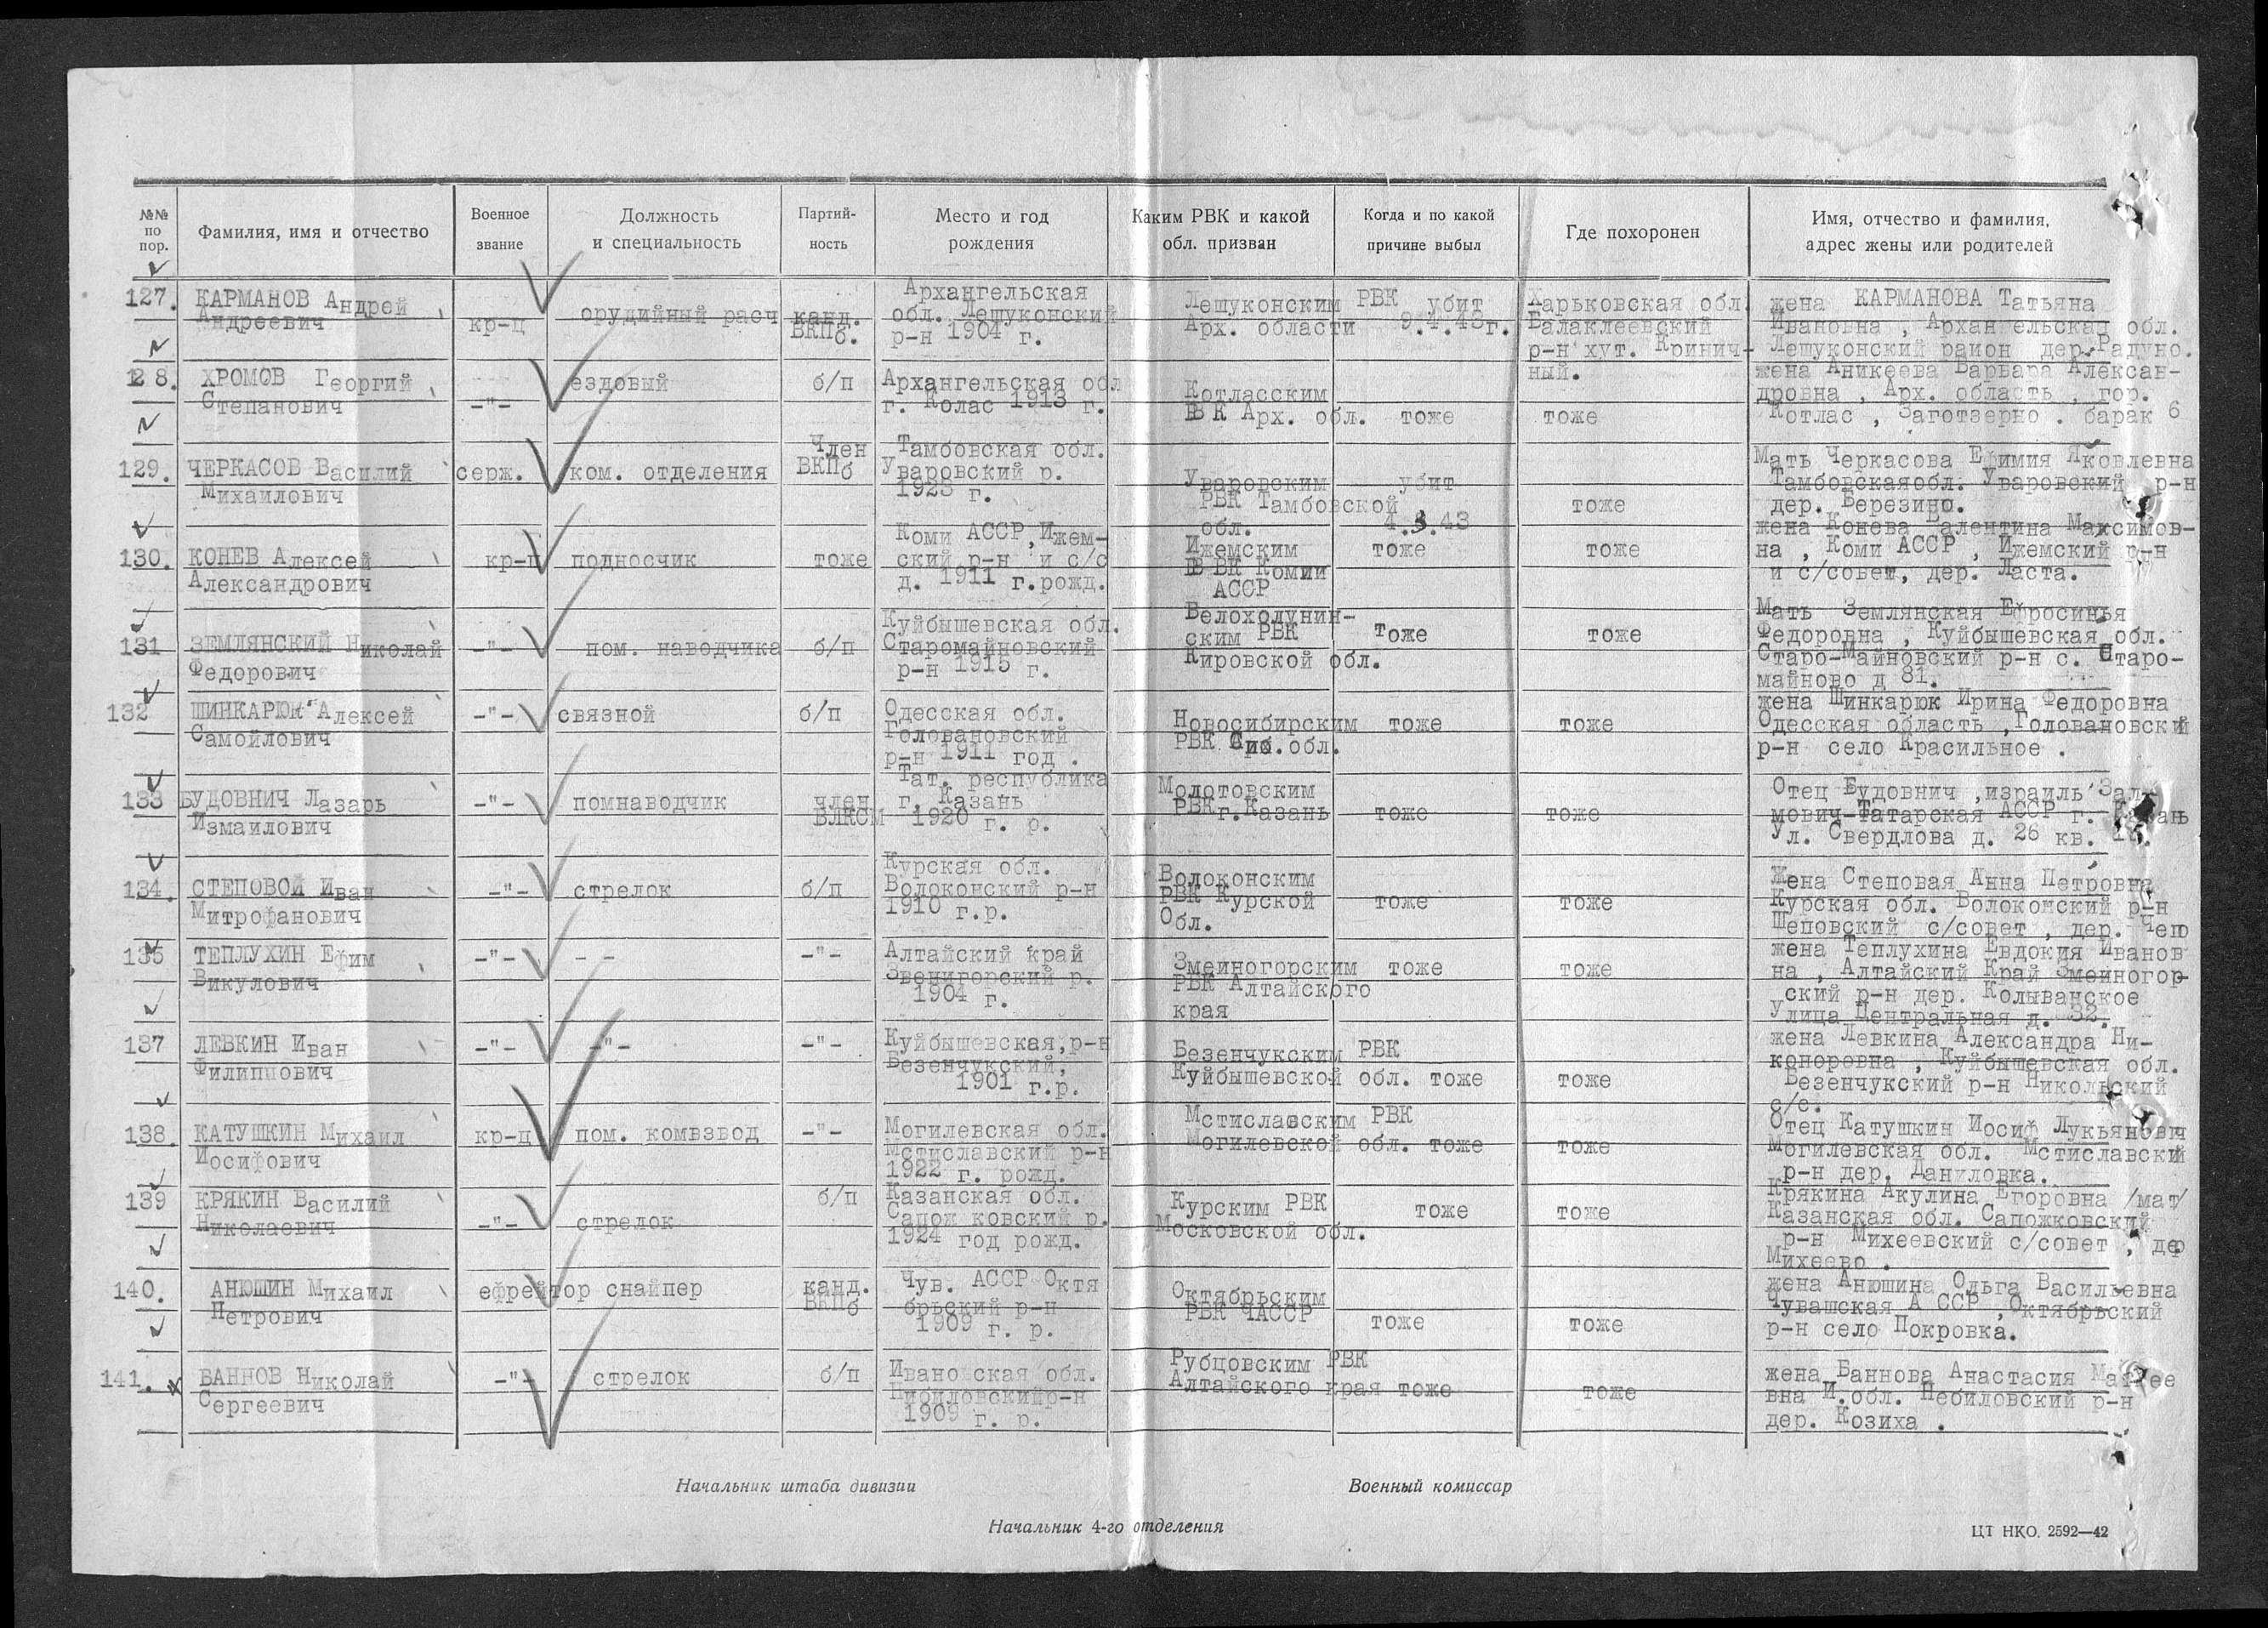 №№ по пор.
Фамилия, имя и отчество
Военное звание
Должность и специальность
Партий- ность
Место и год рождения
Каким РВК и какой обл. призван
Когда и по какой причине выбыл
Где похоронен
Имя, отчество и фамилия, адрес жены или родителей
127. КАРМАНОВ Андрей Андреевич
кр-ц
орудийный расч
канд. ВКПб.
Архангельская обл. Лешуконский р-н 1904 г.
Лешуконским РВК Арх. области
убит 9.4.43г.
Харьковская обл. Балаклеевский р-н хут. Кринич- ный.
жена КАРМАНОВА Татьяна Ивановна , Архангельская обл. Лешуконский район дер. Радуно.
128. ХРОМОВ Георгий Степанович
-"-
ездовый
б/п
Архангельская обл г. Колас 1913 г.
Котласским ВК Арх. обл.
тоже
тоже
жена Аникеева Варвара Алексан- дровна , Арх. область , гор. Котлас , Заготзерно . барак 6
129. ЧЕРКАСОВ Василий Михаилович
серж.
ком. отделения
Член ВКПб
Тамбовская обл. Уваровский р. 1923 г.
Уваровским РВК Тамбовской обл.
убит 4.3.43
тоже
Мать Черкасова Ефимия Яковлевна Тамбовскаяобл. Уваровский р-н дер. Березино.
130. КОНЕВ Алексей Александрович
кр-ц
подносчик
тоже
Коми АССР,Ижем- ский р-н и с/с д. 1911 г.рожд.
Ижемским ВК Комии АССР
тоже
тоже
жена Конева Валентина Максимов- на , Коми АССР , Ижемский р-н и с/совет, дер. Ласта.
131 ЗЕМЛЯНСКИЙ Николай Федорович
-"-
пом. наводчика
б/п
Куйбышевская обл. Старомайновский р-н 1915 г.
Белохолунин- ским РВК Кировской обл.
тоже
тоже
Мать Землянская Ефросинья Федоровна , Куйбышевская обл. Старо-Майновский р-н с. Старо- майново д 81.
132 ШИНКАРЮК Алексей Самойлович
-"-
связной
б/п
Одесская обл. Головановский р-н 1911 год .
Новосибирским РВК Сиб.обл.
тоже
тоже
жена Шинкарюк Ирина Федоровна Одесская область ,Головановский р-н село Красильное .
133 БУДОВНИЧ Лазарь Измаилович
-"-
помнаводчик
член ВЛКСМ
Тат. республика г. Казань 1920 г. р.
Молотовским РВКг.Казань
тоже
тоже
Отец Будовнич ,израиль Зал мович-Татарская АССР г. Казань Ул. Свердлова д. 26 кв.
134. СТЕПОВОЙ Иван Митрофанович
-"-
стрелок
б/п
Курская обл. Волоконский р-н 1910 г.р.
Волоконским РВК Курской Обл.
тоже
тоже
Жена Степовая Анна Петровна Курская обл. Волоконский р-н Шеповский с/совет , дер. Чепо
135 ТЕПЛУХИН Ефим Викулович
-"-
- -
-"-
Алтайский край Звенигорский р. 1904 г.
Змеиногорским РВК Алтайского края
тоже
тоже
жена Теплухина Евдокия Иванов на , Алтайский Край Змеиногор- ский р-н дер. Колыванское Улица Центральная д. 32.
137 ЛЕВКИН Иван Филиппович
-"-
-"-
-"-
Куйбышевская,р-н Безенчукский, 1901 г.р.
Безенчукским РВК Куйбышевской обл.
тоже
тоже
жена Левкина Александра Ни- коноровна , Куйбышевская обл. Безенчукский р-н Никольский с/с.
138. КАТУШКИН Михаил Иосифович
кр-ц
пом. комвзвод
-"-
Могилевская обл. Мстиславский р-н 1922 г. рожд.
Мстиславским РВК Могилевской обл.
тоже
тоже
Отец Катушкин Иосиф Лукьянович Могилевская обл. Мстиславский р-н дер. Даниловка.
139 КРЯКИН Василий Николаевич
-"-
стрелок
б/п
Казанская обл. Сапож ковский р. 1924 год рожд.
Курским РВК Московской обл.
тоже
тоже
Крякина Акулина Егоровна /мат/ Казанская обл. Сапожковский р-н Михеевский с/совет , дер Михеево .
140. АНЮШИН Михаил Петрович
ефрейтор
снайпер
канд. ВКПб
Чув. АССР Октя брьский р-н 1909 г. р.
Октябрьским РВК ЧАССР
тоже
тоже
жена Анюшина Ольга Васильевна Чувашская А ССР , Октябрьский р-н село Покровка.
141. ВАННОВ Николай Сергеевич
-"-
стрелок
б/п
Ивано ская обл. 1909 г. р.
Рубцовским РВК Алтайского края
тоже
тоже
жена Ваннова Анастасия вна И.обл. Небиловский р-н дер. Козиха .
Начальник штаба дивизии
Военный комиссар
Начальник 4-го отделения
ЦТ НКО. 2592—42